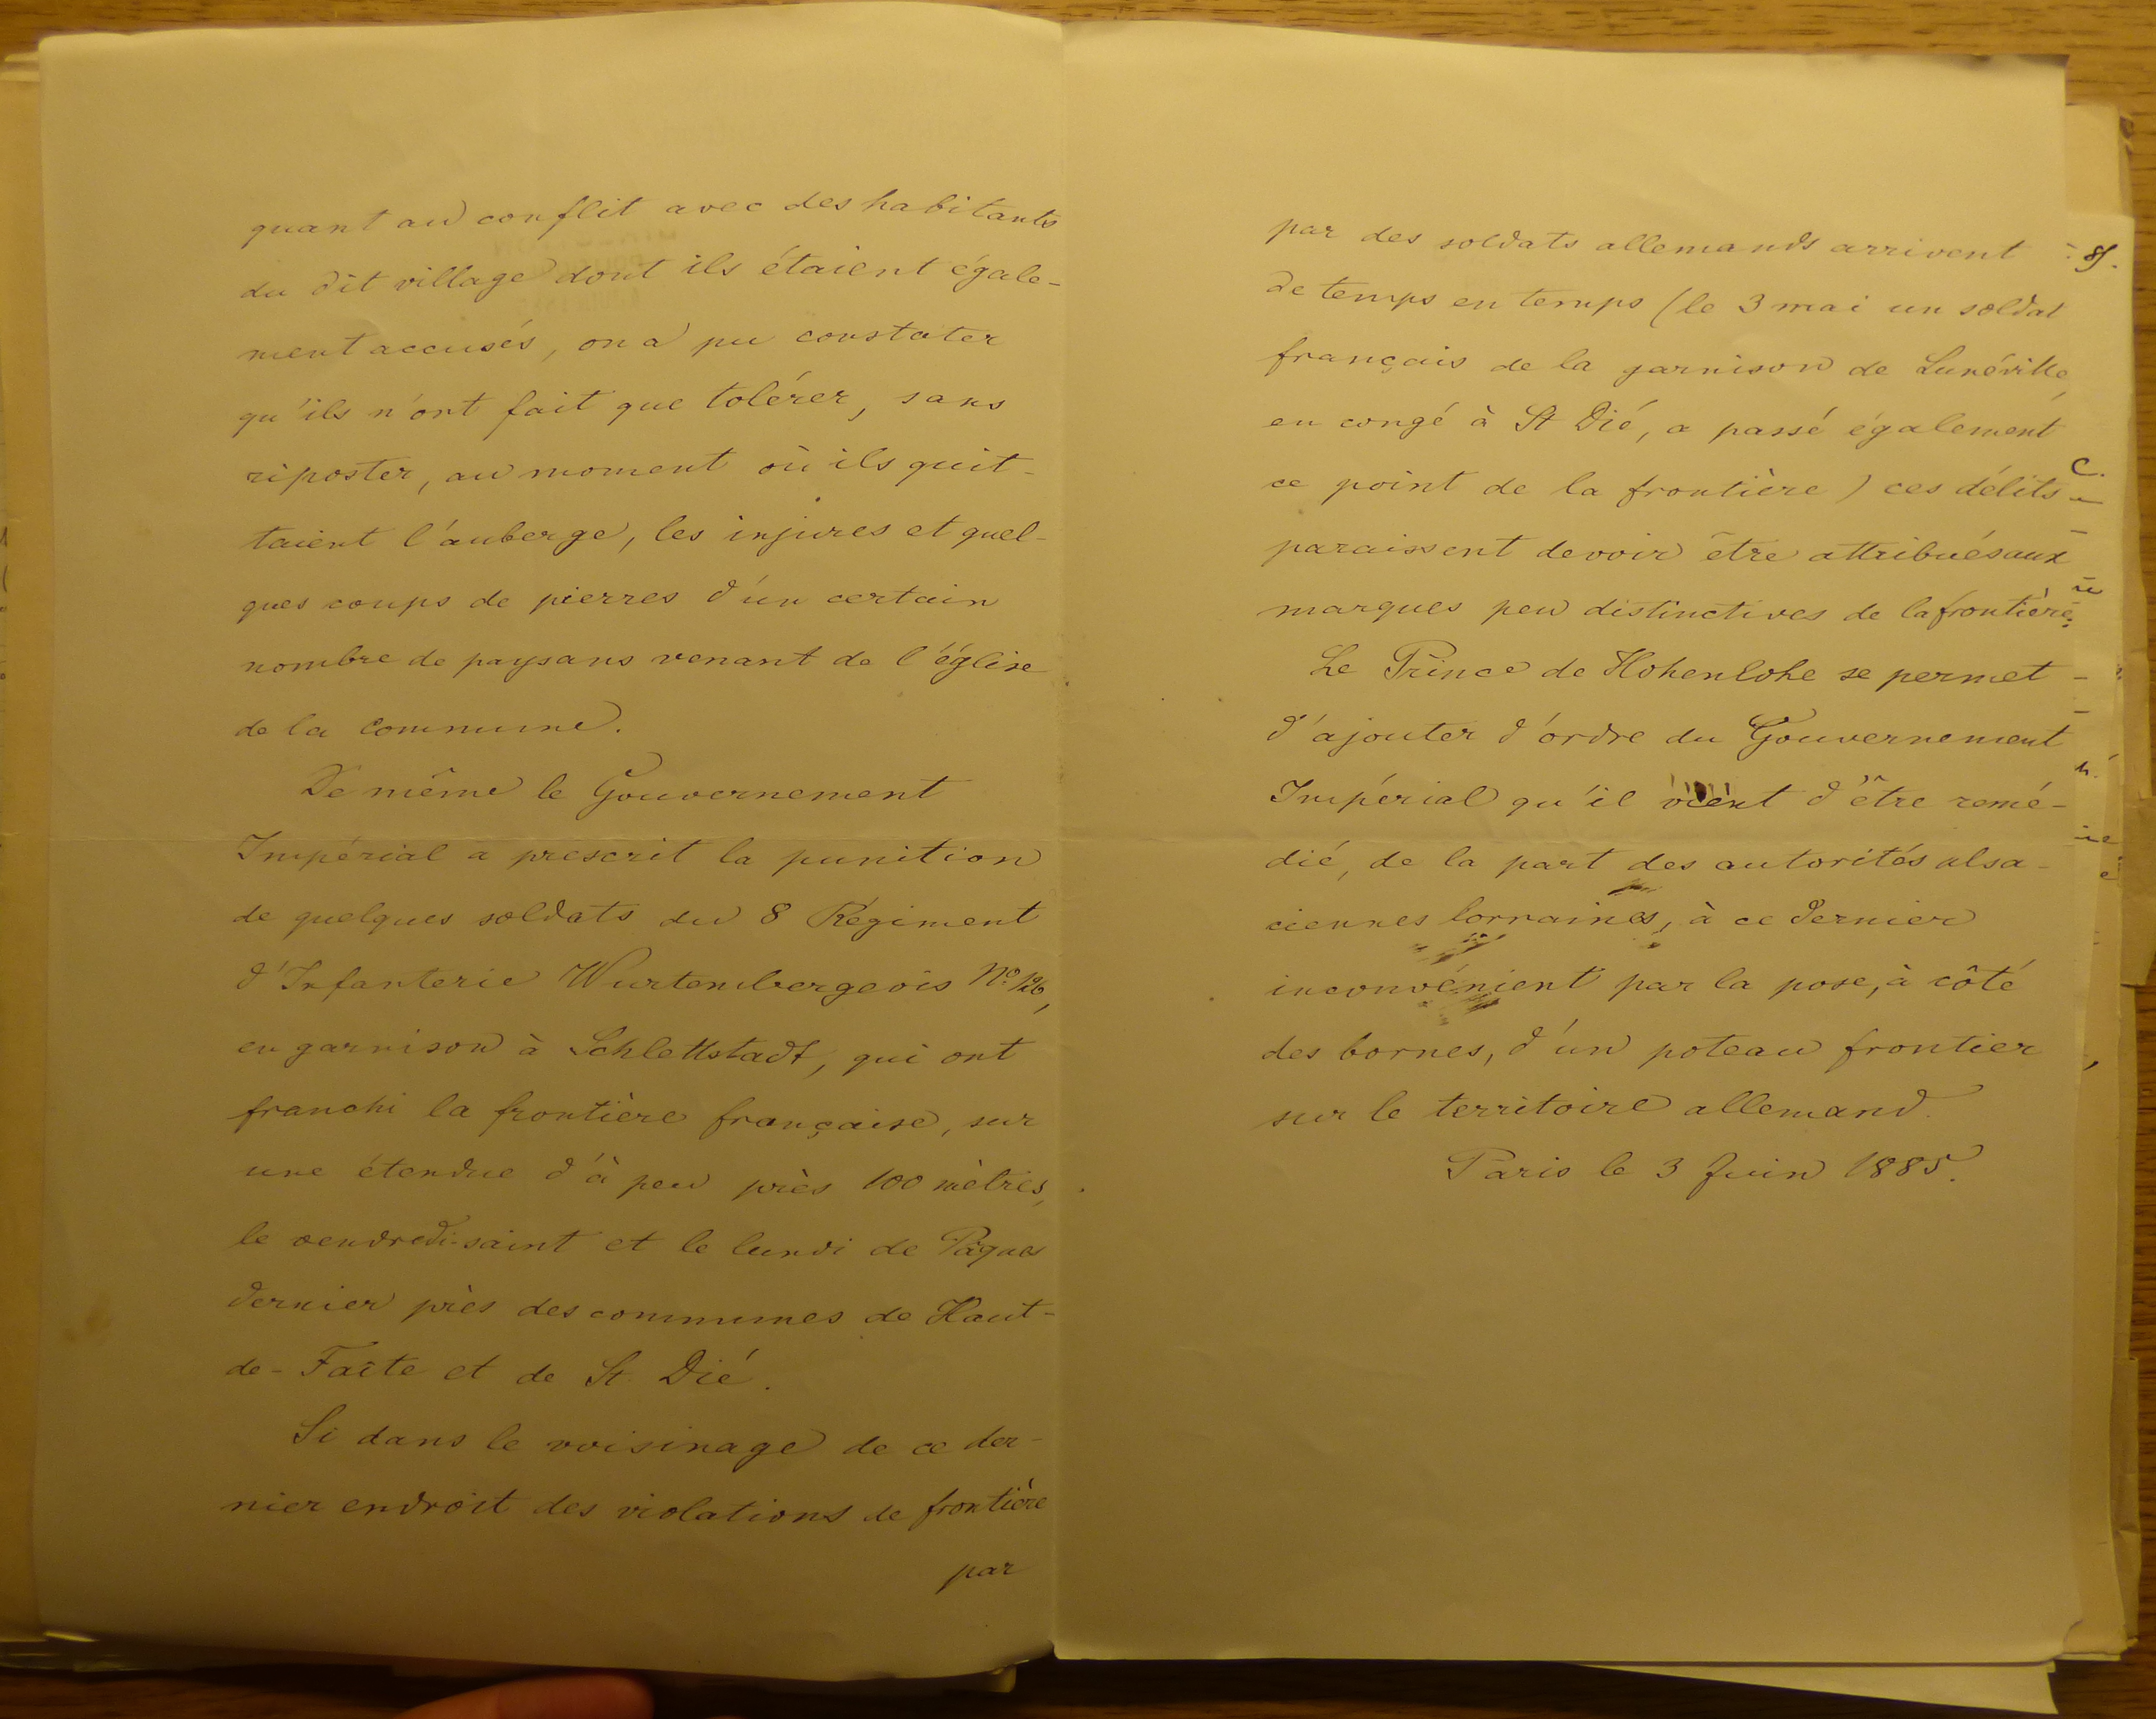 quant au conflit avec des habitants
du dit village dont ils étaient égale-
ment accusés, on a pu constater
qu'ils n'ont fait que tolérer, sans
riposter, au moment où ils quit-
taient l'auberge, les injures et quel-
ques coups de pierres d'un certain
nombre de paysans venant de l'église
de la commune.
De même le Gouvernement
Impérial a prescrit la punition
de quelques soldats du 8 Régiment
d'Infanterie Wurtembergeois No. 126,
en garnison à Schlettstadt, qui ont
franchi la frontière française, sur
une étendue d'à peu près 100 mètres,
le vendredi-saint et le lundi de Pâques
dernier près des communes de Haut-
de-Faîte et de St. Dié.
Si dans le voisinage de ce der-
nier endroit des violations de frontière
par
par des soldats allemands arrivent
de temps en temps (le 3 mai un soldat
français de la garnison de Lunéville,
en congé à St Dié, a passé également
ce point de la frontière) ces délits
paraissent devoir être attribués aux
marques peu distinctives de la frontière.
Le Prince de Hohenlohe se permet
d'ajouter d'ordre du Gouvernement
Impérial qu'il vient d'être remé-
dié, de la part des autorités alsa-
ciennes lorraines, à ce dernier
inconvénient par la pose, à côté
des bornes, d'un poteau frontier
sur le territoire allemand.
Paris le 3 Juin 1885.